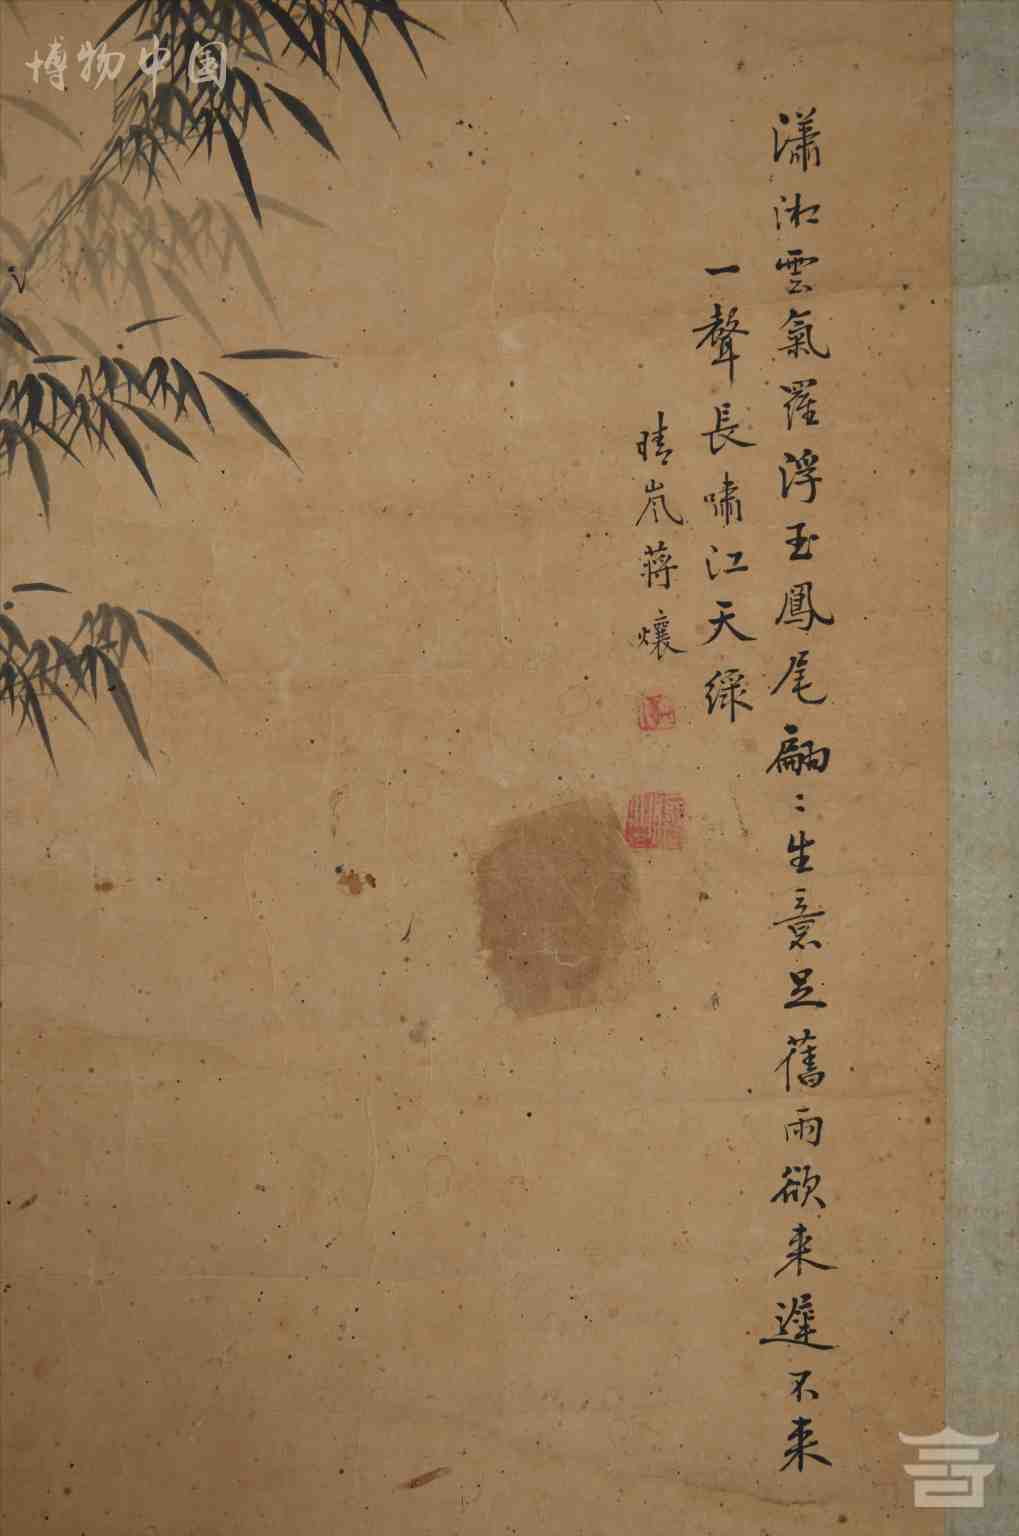 瀟湘雲氣羅浮玉鳳尾翩〻生意足舊雨欲來遲不來
一聲長嘯江天綠
晴嵐蔣爌
博物中国